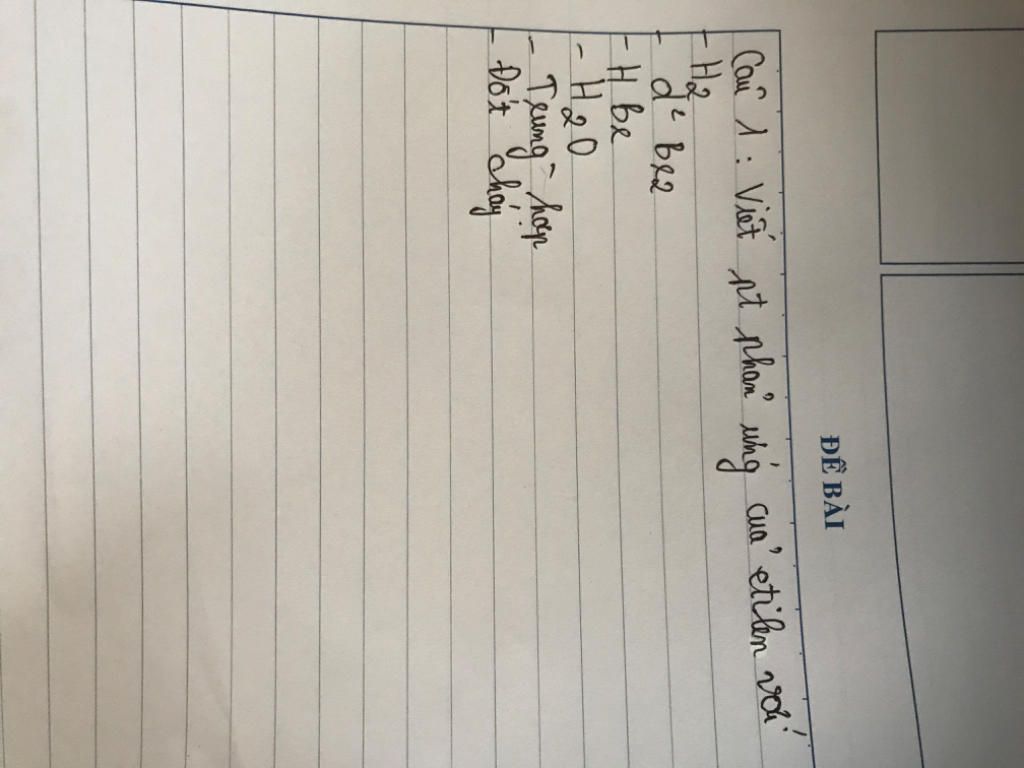 ĐỀ BÀI
Câu 1 : Viết pt phản ứng của etilen với
- H2
- d² Br2
- H Br
- H2O
- Trùng hợp
- Đốt cháy